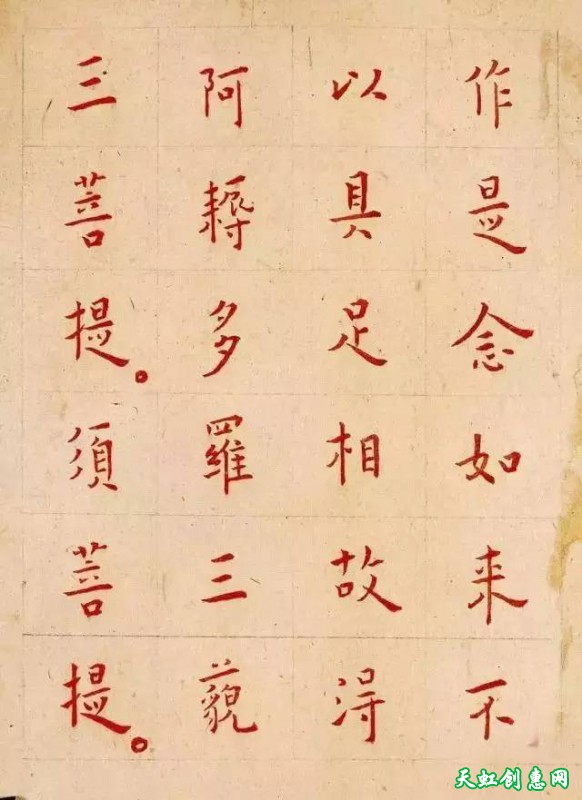 作是念如来不
以具足相故得
阿耨多羅三藐
三菩提。須菩提。
天虹创惠网